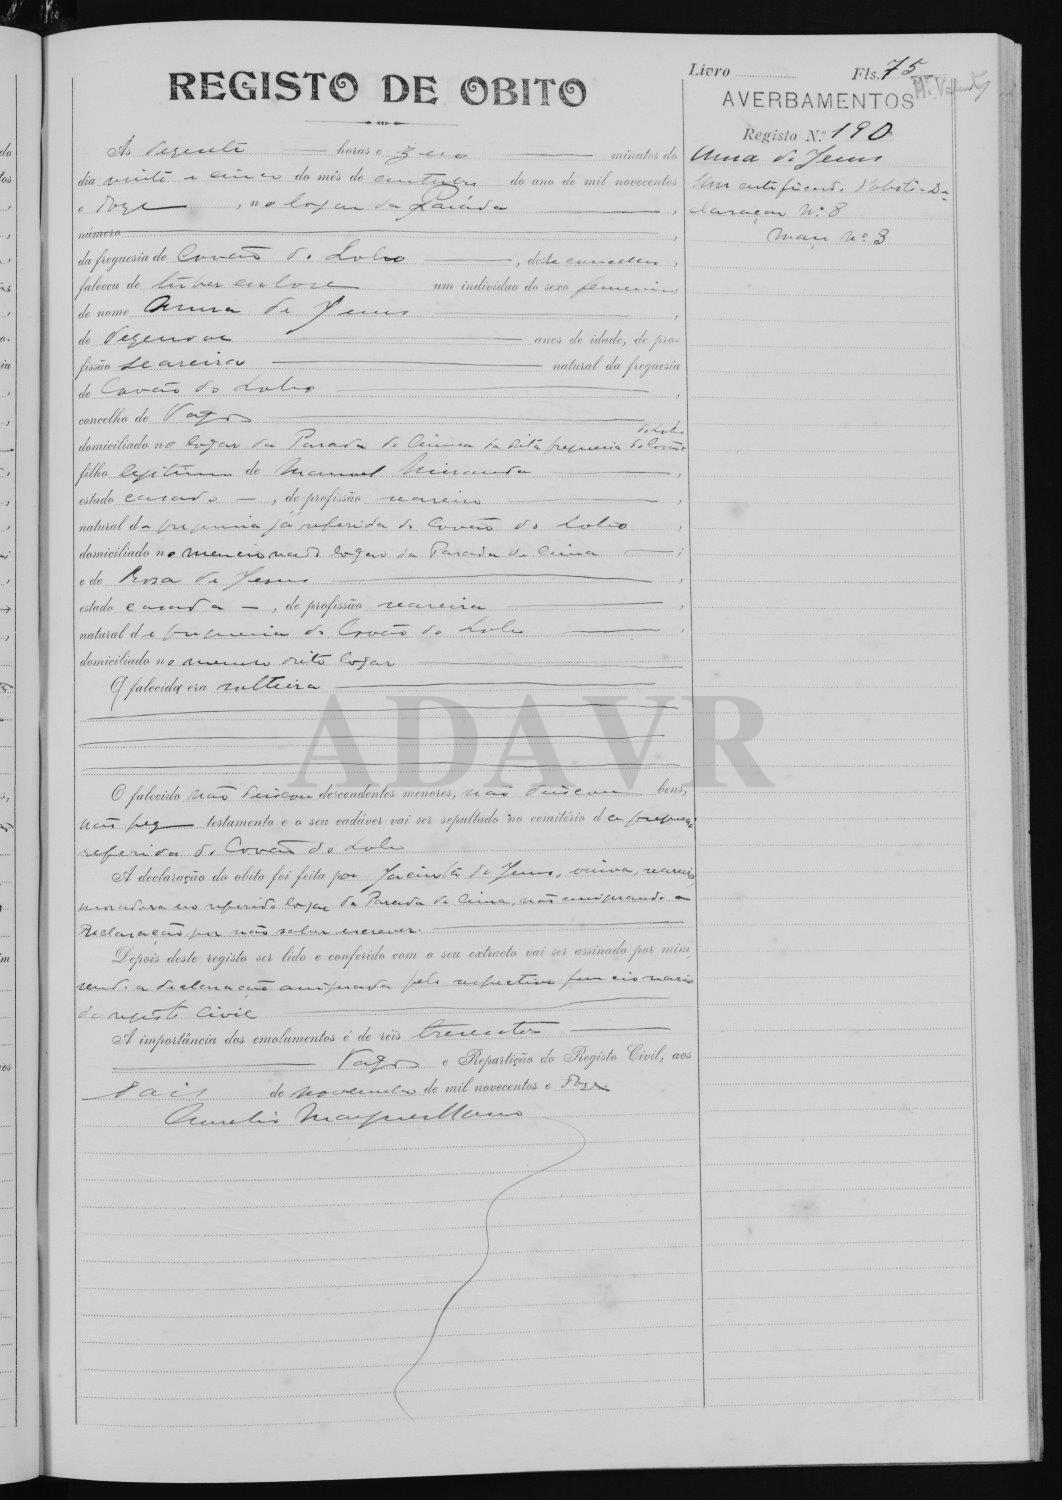 Livro Fls. 75
REGISTO DE OBITO
AVERBAMENTOS
Registo N.º 190
Anna de Jesus
Um certificado d'obito. De-
claração N.º 8
Maço nº 3
Ás dezesete horas e zero minutos do
dia vinte e cinco do mês de outubro do ano de mil novecentos
e doze, no logar da Parada,
número
da freguesia de Covão do Lobo, deste concelho,
faleceu de tuberculose um individuo do sexo femenino
de nome Anna de Jesus,
de dezenove anos de idade, de pro-
fissão seareira natural da freguesia
de Covão do Lobo,
concelho de Vagos
domiciliado no logar da Parada de Cima da dita freguesia do Covão do Lobo
filho legitima de Manuel Miranda,
estado casado, de profissão seareiro,
natural da freguesia já referida de Covão do Lobo,
domiciliado no mencionado logar da Parada de Cima;
e de Rosa de Jesus,
estado casada, de profissão seareira,
natural de freguesia do Covão do Lobo,
domiciliado no mesmo dito logar
A falecida era solteira
ADAVR
O falecido não deixou descendentes menores, não deixou bens,
não fez testamento e o seu cadáver vai ser sepultado no cemitério da freguesia
referida de Covão do Lobo
A declaração do obito foi feita por Jacinta de Jesus, viuva, seareira,
moradora no referido logar da Parada de Cima, não assignando a
declaração por não saber escrever.
Depois deste registo ser lido e conferido com o seu extracto vai ser assinado por mim
sendo a declaração assignada pelo respectivo funcionario
do registo civil
A importância dos emolumentos é de réis trezentos
Vagos e Repartição do Registo Civil, aos
dois de novembro de mil novecentos e doze.
Aurelio Marques Mano